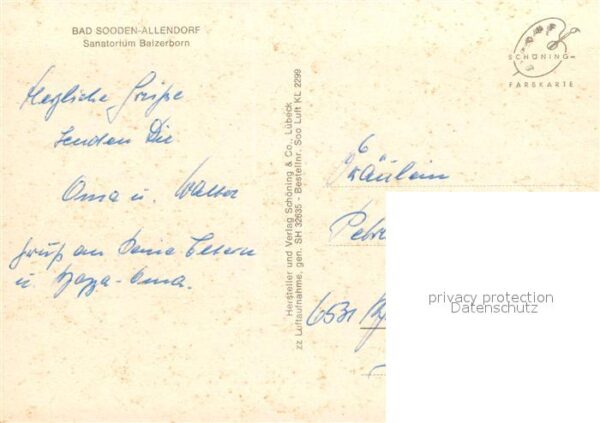 BAD SOODEN-ALLENDORF
Sanatorium Balzerborn
Herzliche Grüße
senden Dir
Oma u. Walter
Gruß an Deine Eltern
u. Hoppa-Oma.
Hersteller und Verlag Schöning & Co., Lübeck
zz Luftaufnahme, gen. SH 32635 - Bestellnr. Soo Luft KL 2299
SCHÖNING-
FARBKARTE
Fräulein
Petra
6531
privacy protection
Datenschutz